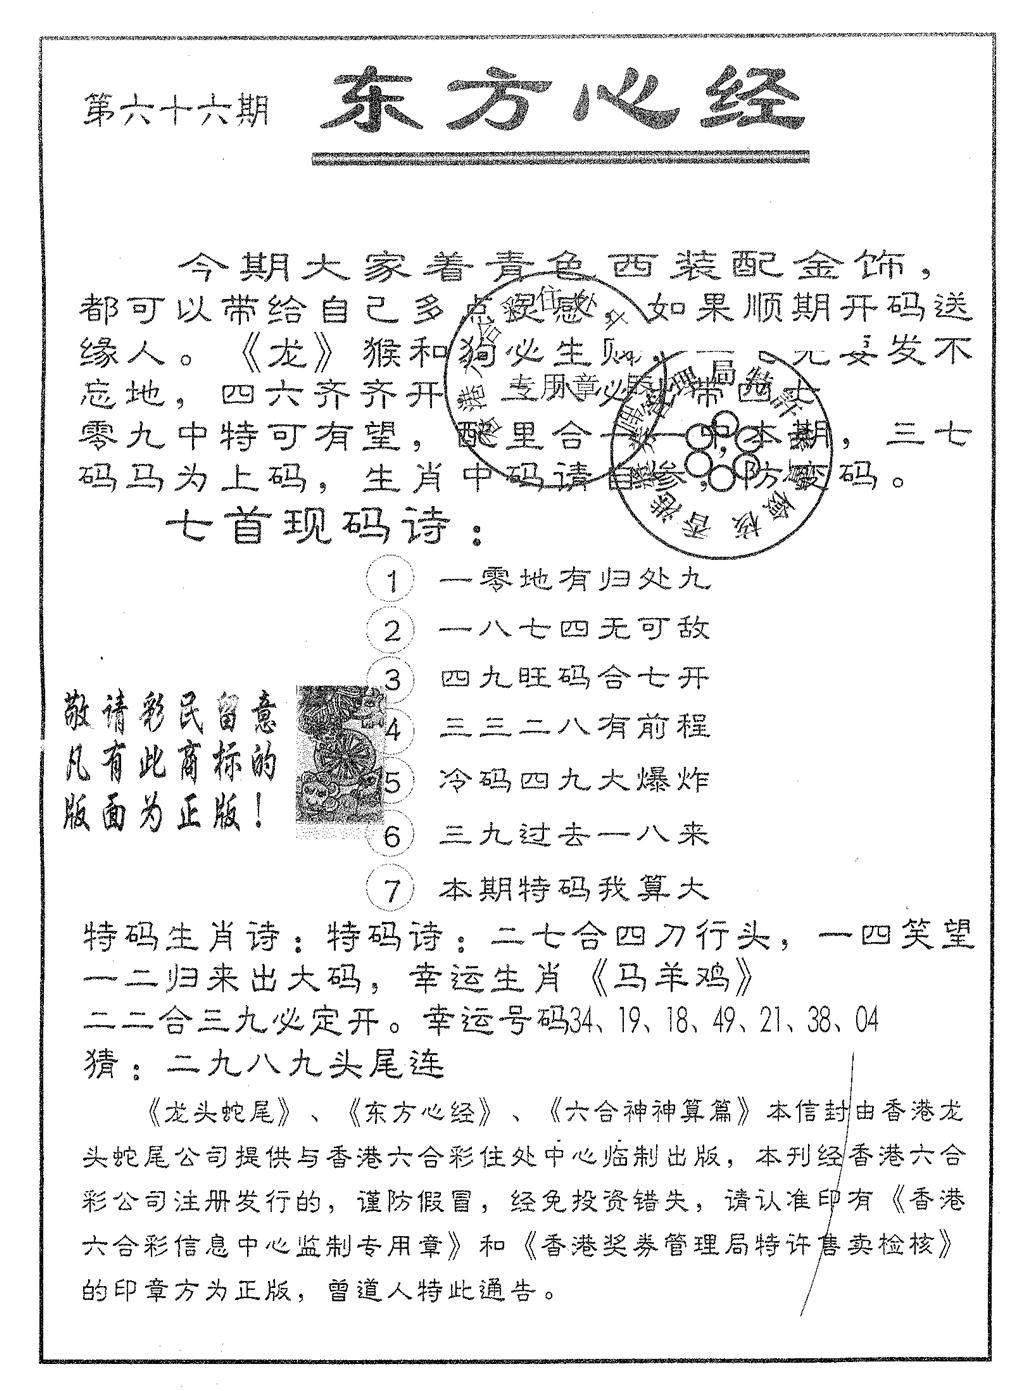 第六十六期
东方心经
今期大家着青色西装配金饰，
都可以带给自己多点灵感，如果顺期开码送
缘人。《龙》猴和狗必生财，发不
忘地，四六齐齐开必带四士
零九中特可有望，配里合一一中本期，三七
码马为上码，生肖中码请自参，防变码。
七首现码诗：
1 一零地有归处九
2 一八七四无可敌
3 四九旺码合七开
4 三三二八有前程
5 冷码四九大爆炸
6 三九过去一八来
7 本期特码我算大
敬请彩民留意
凡有此商标的
版面为正版！
专用章
香港奖券管理局特許售賣檢核
特码生肖诗：特码诗：二七合四刀行头，一四笑望
一二归来出大码，幸运生肖《马羊鸡》
二二合三九必定开。幸运号码34、19、18、49、21、38、04
猜：二九八九头尾连
《龙头蛇尾》、《东方心经》、《六合神神算篇》本信封由香港龙
头蛇尾公司提供与香港六合彩住处中心临制出版，本刊经香港六合
彩公司注册发行的，谨防假冒，经免投资错失，请认准印有《香港
六合彩信息中心监制专用章》和《香港奖券管理局特许售卖检核》
的印章方为正版，曾道人特此通告。